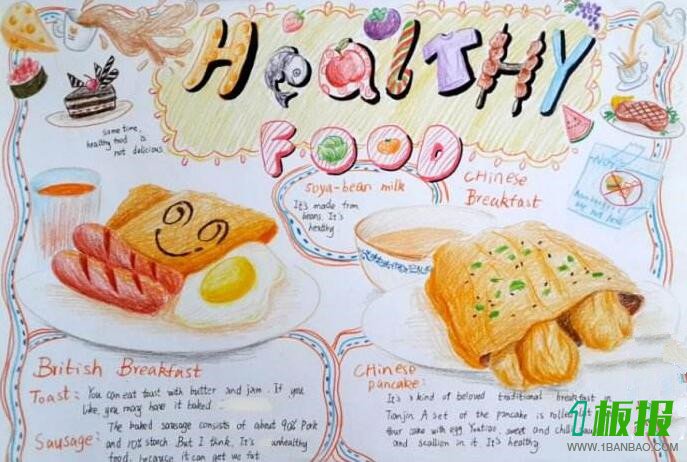 Healthy
FOOD
Some time,
healthy food is
not delicious
soya-bean milk
It's made from
beans. It's
healthy
CHinese
Breakfast
British Breakfast
Toast: You can eat toast with butter and jam. If you
like, you may have it baked.
Sausage: The baked sausage consists of about 90% Pork
and 10% starch. But I think, It's unhealthy
food, because it can get us fat
CHinese
pancake:
It's a kind of beloved traditional breakfast in
Tianjin. A set of the pancake is rolled
four cake with egg Youtiao, sweet and chili
and scallion in it. It's healthy
1板报
WWW.1BANBAO.COM